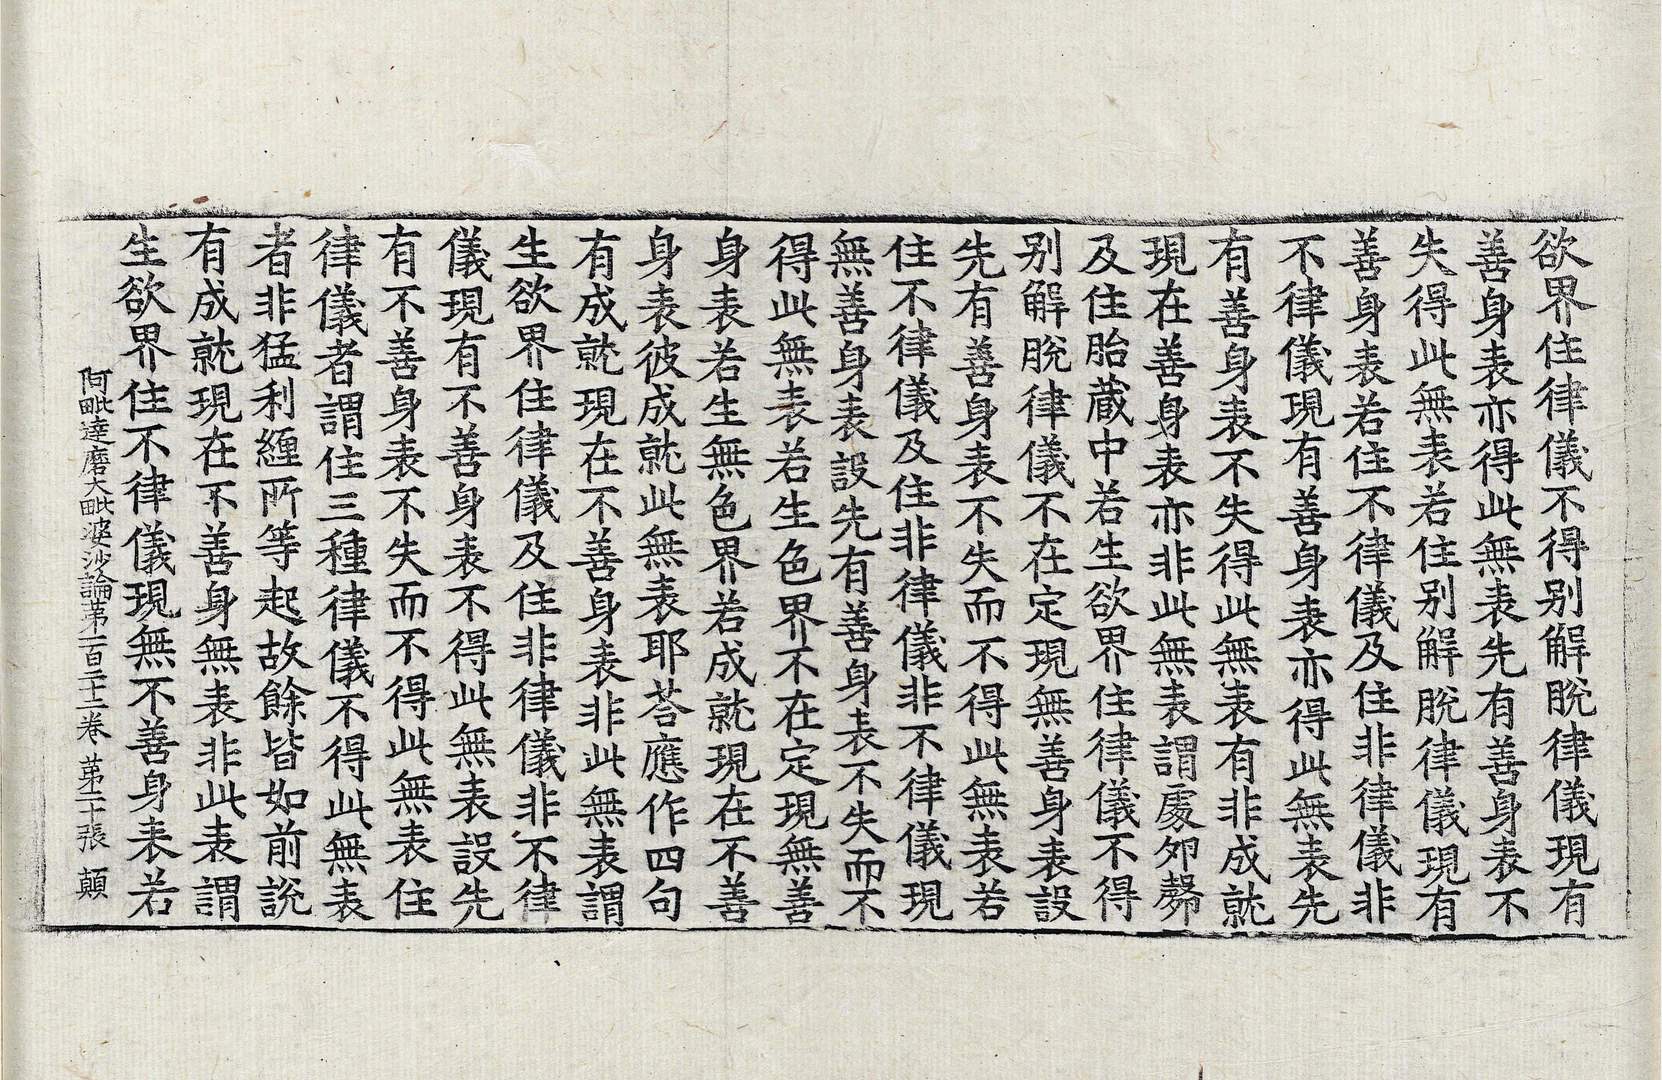 欲界住律儀不得别解脫律儀現有
善身表亦得此無表先有善身表不
失得此無表若住别解脫律儀現有
善身表若住不律儀及住非律儀非
不律儀現有善身表亦得此無表先
有善身表不失得此無表有非成就
現在善身表亦非此無表謂處夘㲉
及住胎藏中若生欲界住律儀不得
别解脫律儀不在定現無善身表設
先有善身表不失而不得此無表若
住不律儀及住非律儀非不律儀現
無善身表設先有善身表不失而不
得此無表若生色界不在定現無善
身表若生無色界若成就現在不善
身表彼成就此無表耶荅應作四句
有成就現在不善身表非此無表謂
生欲界住律儀及住非律儀非不律
儀現有不善身表不得此無表設先
有不善身表不失而不得此無表住
律儀者謂住三種律儀不得此無表
者非猛利纏所等起故餘皆如前說
有成就現在不善身無表非此表謂
生欲界住不律儀現無不善身表若
阿毗達磨大毗婆沙論苐一百二十二卷苐二十張 顛